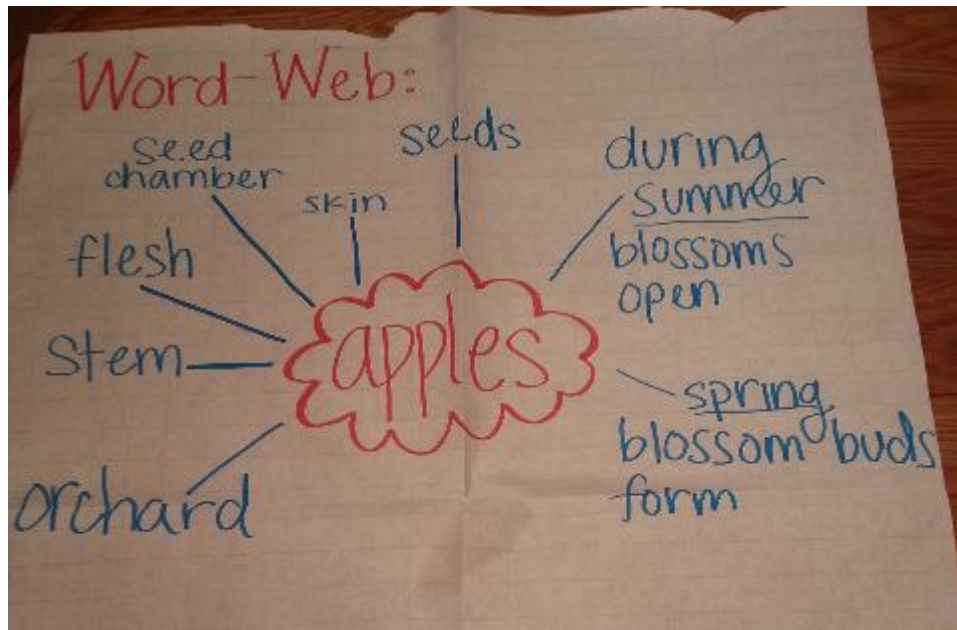 Word-Web:
seed
chamber
skin
seeds
during
summer
blossoms
open
flesh
stem
apples
spring
blossom buds
form
orchard